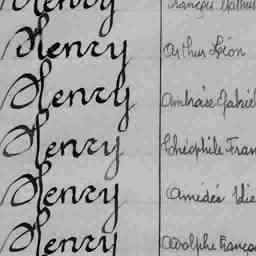 Henry François Mathieu
Henry Arthur Léon
Henry Ambroise Gabriel
Henry Théophile Fran
Henry Amédée
Henry Adolphe Françoi